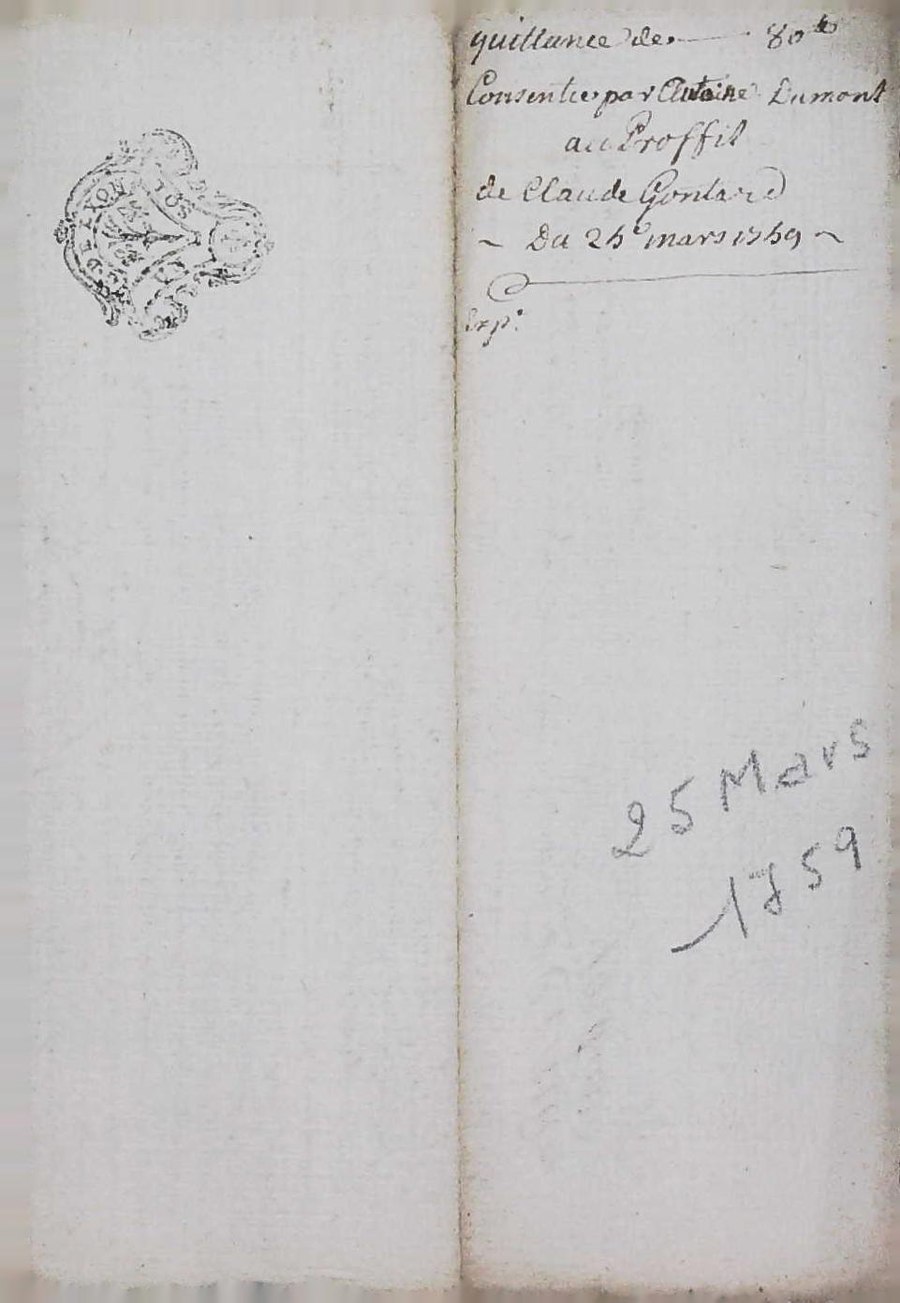 quittance de. 80 ₶
Consentie par Antoine Dumont
au Proffit
de Claude Gontard
~ Du 25e mars 1759 ~
Exp.
25 Mars
1759